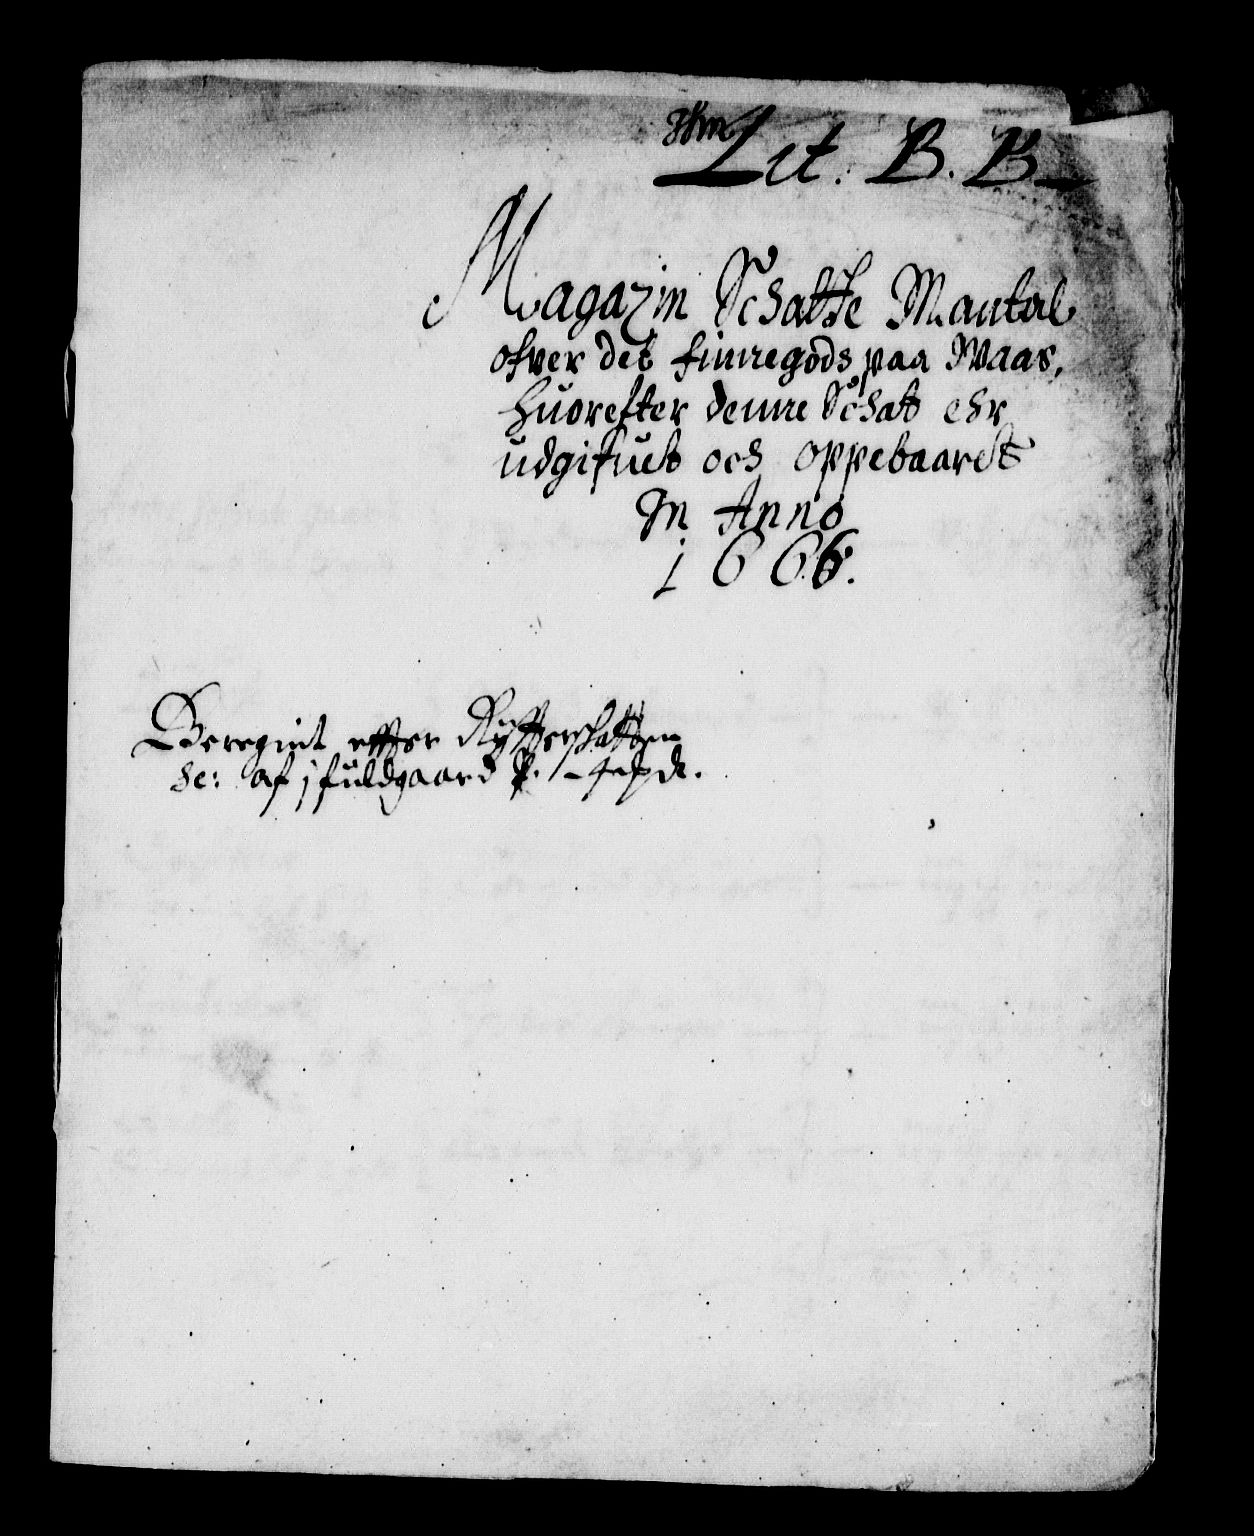 Lit. B. B
Magazin Schatte Mantal
ofver det finnegods paa Waas,
huorefter denne Schat ehr
udgifuet och oppebaaret
In Anno
1666.
Beregint effter Rÿtterschatten
sc: af j fuldgaard